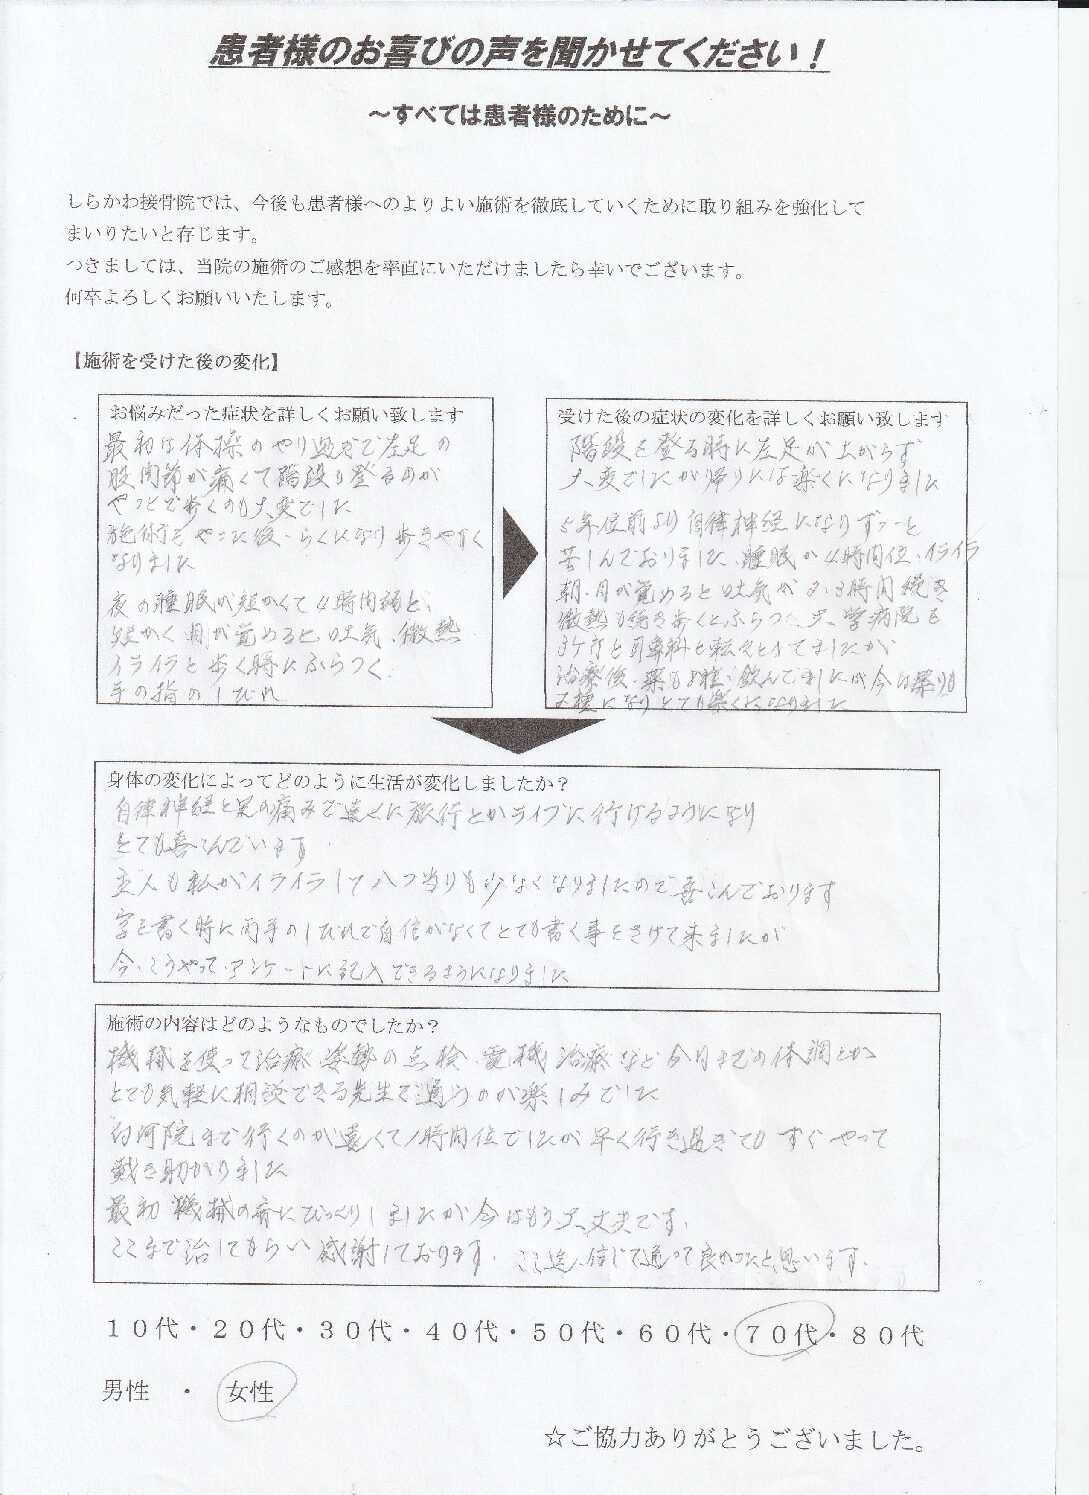 患者様のお喜びの声を聞かせてください！
～すべては患者様のために～
しらかわ接骨院では、今後も患者様へのよりよい施術を徹底していくために取り組みを強化して
まいりたいと存じます。
つきましては、当院の施術のご感想を率直にいただけましたら幸いでございます。
何卒よろしくお願いいたします。
【施術を受けた後の変化】
お悩みだった症状を詳しくお願い致します
最初は体操のやり過ぎで左足の
股関節が痛くて階段も登るのが
やっとで歩くのも大変でした
施術をやった後、らくになり歩きやすく
なりました
夜の睡眠が短かくて4時間弱と、
短かく目が覚めると、吐気、微熱
イライラと歩く時にふらつく
手の指のしびれ
受けた後の症状の変化を詳しくお願い致します
階段を登る時に左足が上がらず
大変でしたが帰りには楽になりました
5年位前より自律神経になりずーっと
苦しんでおりました、睡眠が4時間位、イライラ
朝、目が覚めると吐気が2、3時間続き
微熱も続き歩くとふらつき、大学病院を
耳鼻科と転々としてましたが
治療後、薬も飲んでましたが今は薬りも
2種になりとても楽になりました
身体の変化によってどのように生活が変化しましたか？
自律神経と足の痛みで遠くに旅行とかライブに行けるようになり
とても喜こんでいます
主人も私がイライラして八つ当りも少なくなりましたので喜こんでおります
字を書く時に両手のしびれで自信がなくてとても書く事をさけて来ましたが
今、こうやって、アンケートに記入できるようになりました
施術の内容はどのようなものでしたか？
機械を使って治療、姿勢の点検、電機治療など今日までの体調とか
とても気軽に相談できる先生で通うのが楽しみでした
白河院まで行くのが遠くて1時間位でしたが早く行き過ぎてもすぐやって
戴き助かりました
最初機械の音にびっくりしましたが今はもう大丈夫です。
ここまで治してもらい感謝しております。ここ迄、信じて通って良かったと思います。
１０代・２０代・３０代・４０代・５０代・６０代・７０代・８０代
男性 ・ 女性
☆ご協力ありがとうございました。